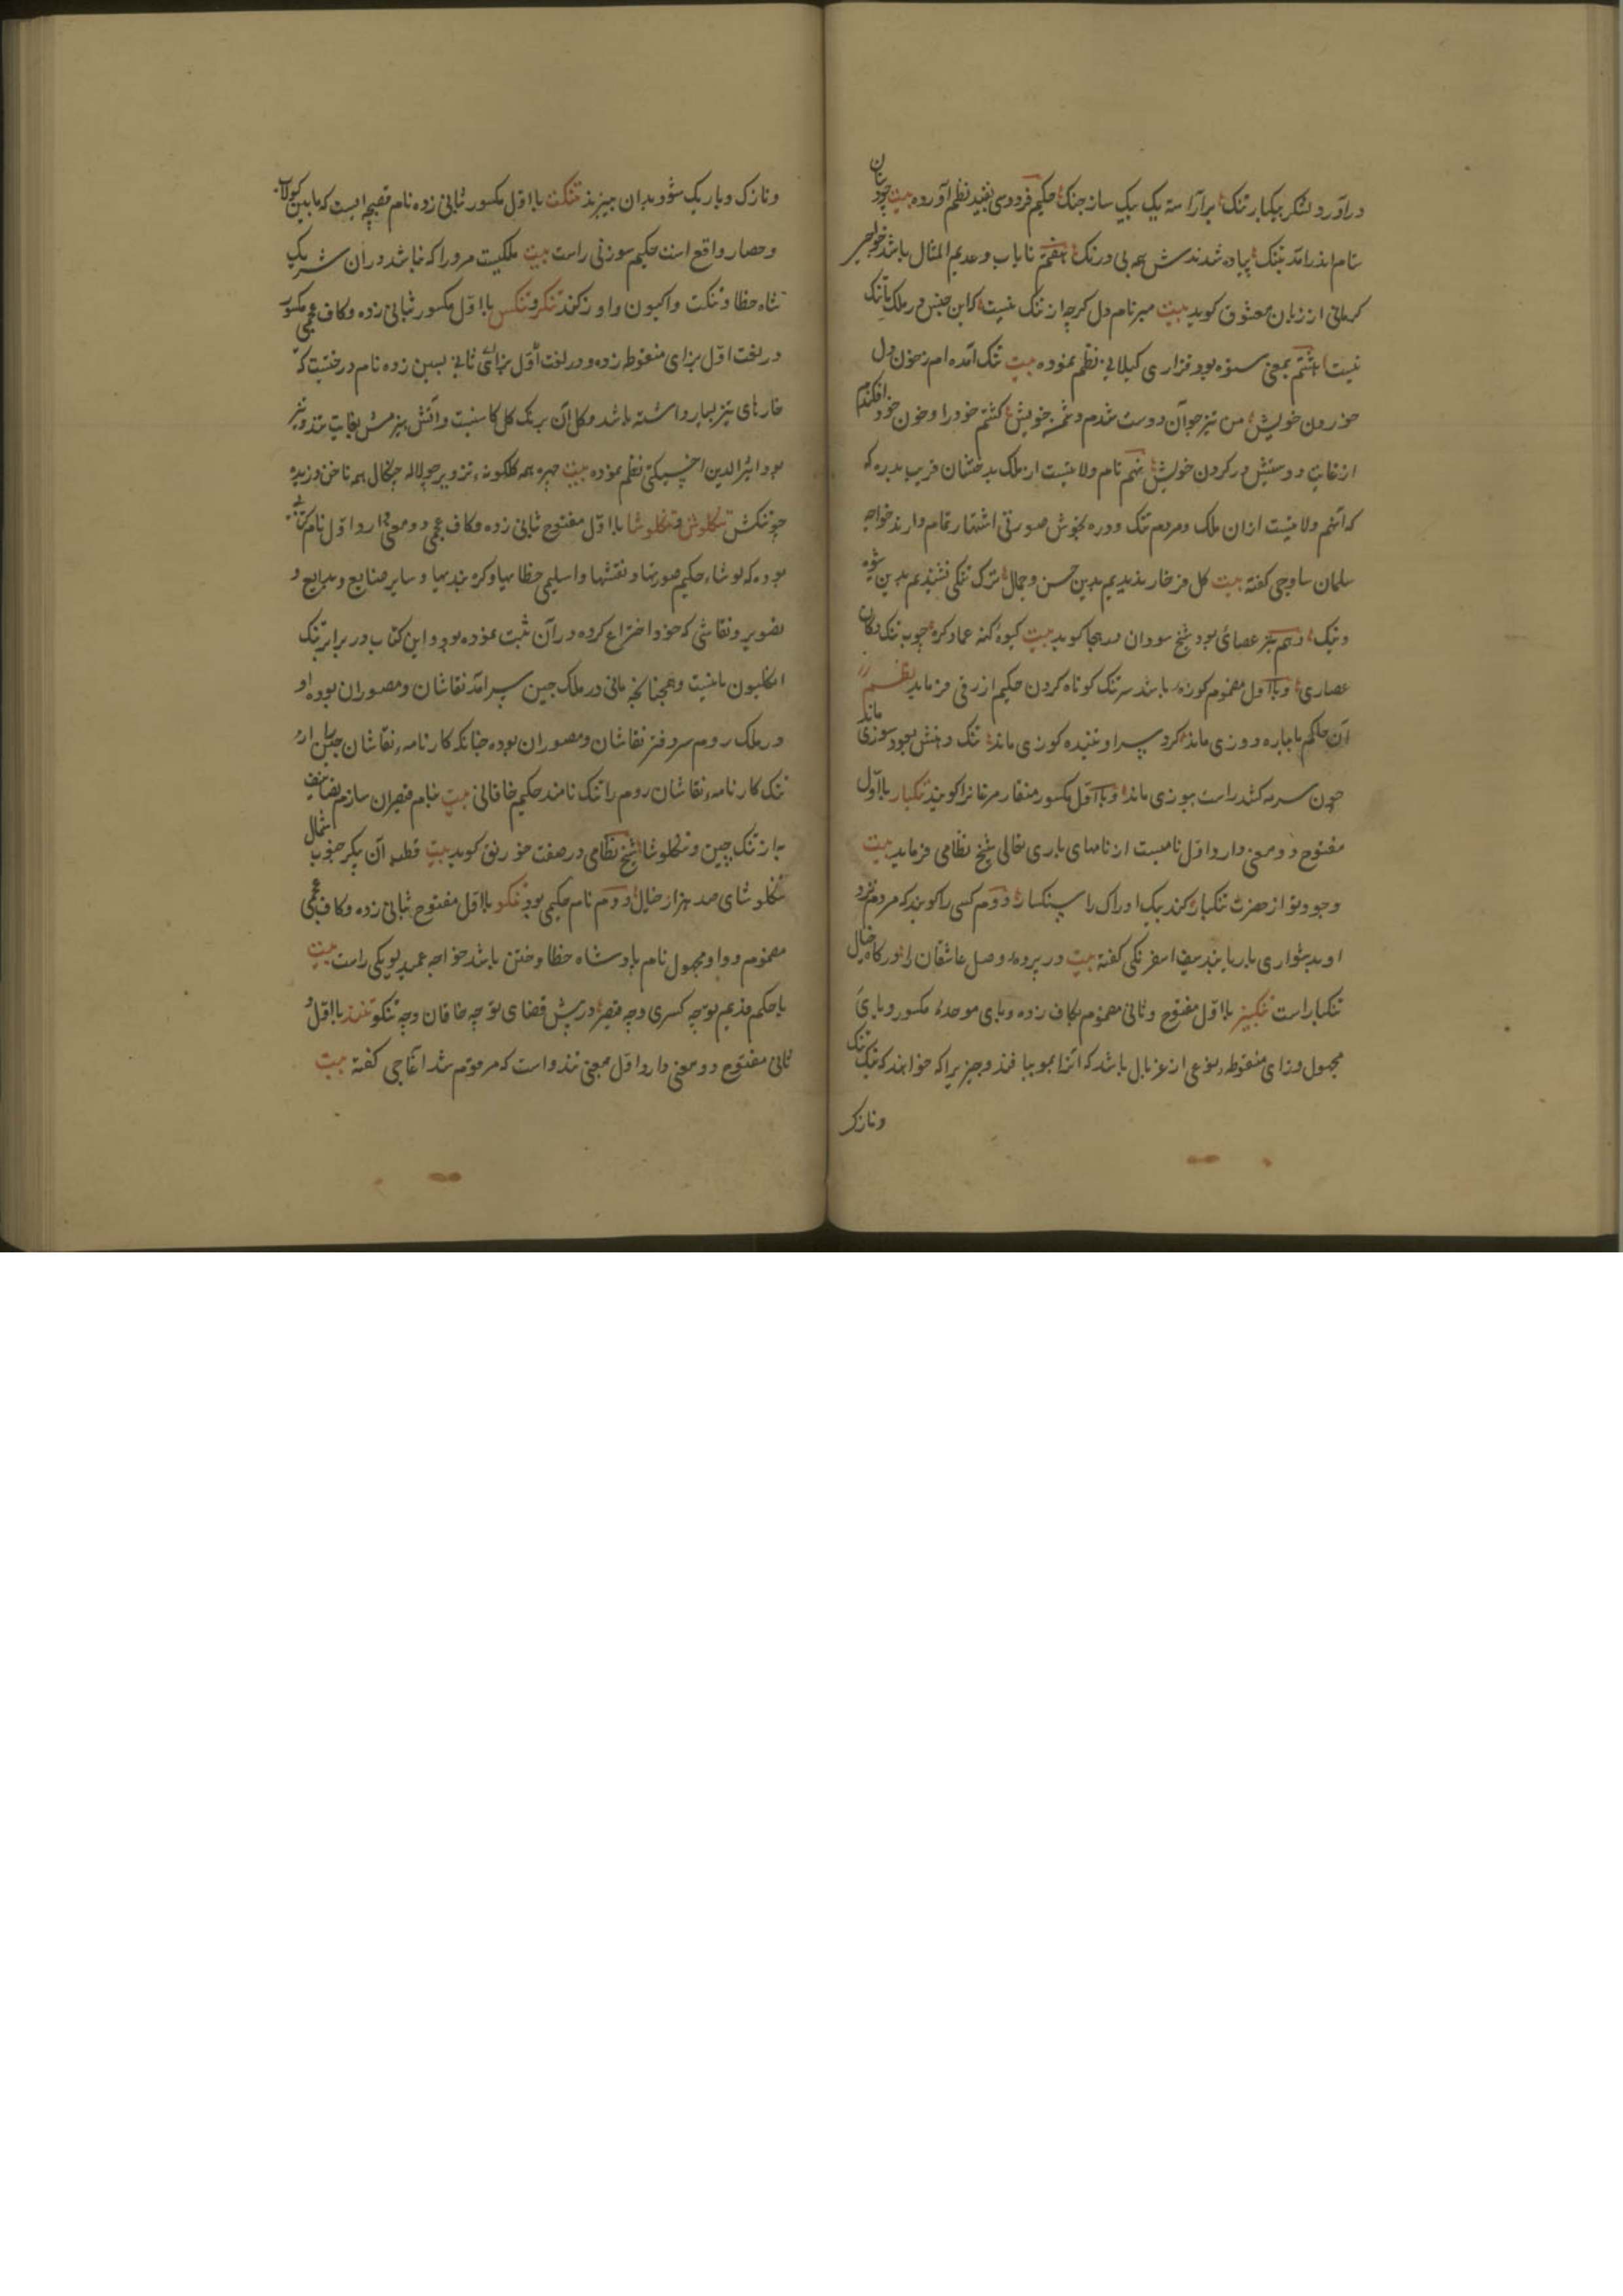 دراورد لشکر بیکبار تنک برآراسته یک بیک ساز جنک حکیم فردوسی بقید نظم آورده بیت چو دستان
سام اندرآمد بتنک پیاده شدندش همه بی درنک هفتم نایاب و عدیم المثال باشد خواجو
کرمانی از زبان معشوق کوید بیت مبر نام دل کرچه از تنک نیست که این جنس در ملک ما تنک
نیست هشتم بمعنی ستوه بود نزاری نظم نموده بیت تنک آمده ام ز خون دل
خوردن خویش من نیز جوآن دوست شدم دشمن خویش کشتم خود را و خون خود افکندم
از غایت دوستیش در کردن خویش نهم نام ولایتست از ملک بدخشان قریب بدره که
که آنهم ولایتست ازان ملک و مردم تنک و دره بخوش صورتی اشتهار تمام دارند خواجه
سلمان ساوجی کفته بیت کل فرخار ندیدیم بدین حسن و جمال ترک تنکی نشنیدیم بدین شیوه
و تنک دهم تیر عصاری بود شیخ سودان کوید بیت
عصاری و باآول مضموم کوزه باشد سر تنک کوتاه کردن حکیم ازرقی فرماید نظم
آن حاکم ماند کرد ماند تنک دهنش بوزی ماند
چون سرمه کشد راست بیوزی ماند و باآول مکسور منقار مرغانرا کویند تنکبار بااول
مفتوح دو معنی دارد اول نامیست از نامهای باری تعالی شیخ نظامی فرماید بیت
وجود تو از حضرت تنکبار کند بیک ادراک را سنکسار دوم کسی را کویند که مردم نزد
او بدشواری بار یابند سیف اسفرنکی کفته بیت در پرده وصل عاشقان را درکاه خیال
تنکبار است تنکبیز بااول مفتوح و ثانی مضموم بکاف زده و بای موحده مکسور و یای
مجهول و زای منقوطه نوعی از غربال باشد که آنرا بمو ببافند و چیزیرا که خواهند که تنک
ونازک
ونازک و باریک شود بدان ببیزند تنکت بااول مکسور ثبانی زده نام قصبچه ایست که مابین کولاب
و حصار واقع است حکیم سوزنی راست بیت ملکیست مرورا که نباشد دران شریک
شاه خطا و تنکت تنکز و تنکس بااول مکسور ثبانی زده و کاف عجمی مکسور
در لغت اول بزای منقوطه زده و در لغت ثانی بسین زده نام درختیست که
خارهای تیز بسیار داشته باشد و کل آن برنک کل کاسنیست و آتش هیزمش بغایت تند و تیز
بود اثیرالدین اخسیکتی نظم نموده بیت چهره همه کلکونه تزویر چو لاله چنکال همه ناخن دزدیده
چو تنکس تنکلوش و تنکلوشا بااول مفتوح ثبانی زده و کاف عجمی دو معنی دارد اول نام کتابی
بوده که لوشاء حکیم صورتها و نقشها و اسلیمی خطاییها و کره بندیها و سایر صنایع و بدایع و
تصویر و نقاشی که خود اختراع کرده در آن ثبت نموده بود و این کتاب در برابر تنک
انکلیون مانیست و همچنانکه مانی در ملک چین سرآمد نقاشان و مصوران بوده او
در ملک روم سر دفتر نقاشان و مصوران بوده چنانکه کارنامه نقاشان چین را ارژ
تنک کارنامه نقاشان روم را تنک نامند حکیم خاقانی بیت بنام قیصران سازم تصانیف
به از تنک چین و تنکلوشا شیخ نظامی در صفت خورنق کوید بیت قطب آن پیکر جنوب شمال
تنکلوشای صد هزار خیال دوم نام حکیمی بود تنکو بااول مفتوح ثبانی زده و کاف عجمی
مضموم و واو مجهول نام پادشاه خطا و ختن باشد خواجه عمید لویکی راست بیت
با حکم قدیم تو چه کسری و چه قیصر در پیش قضای تو چه خاقان و چه تنکو تنند بااول و
ثانی مفتوح دو معنی دارد اول بمعنی تندو است که مرقوم شد آغاجی کفته بیت